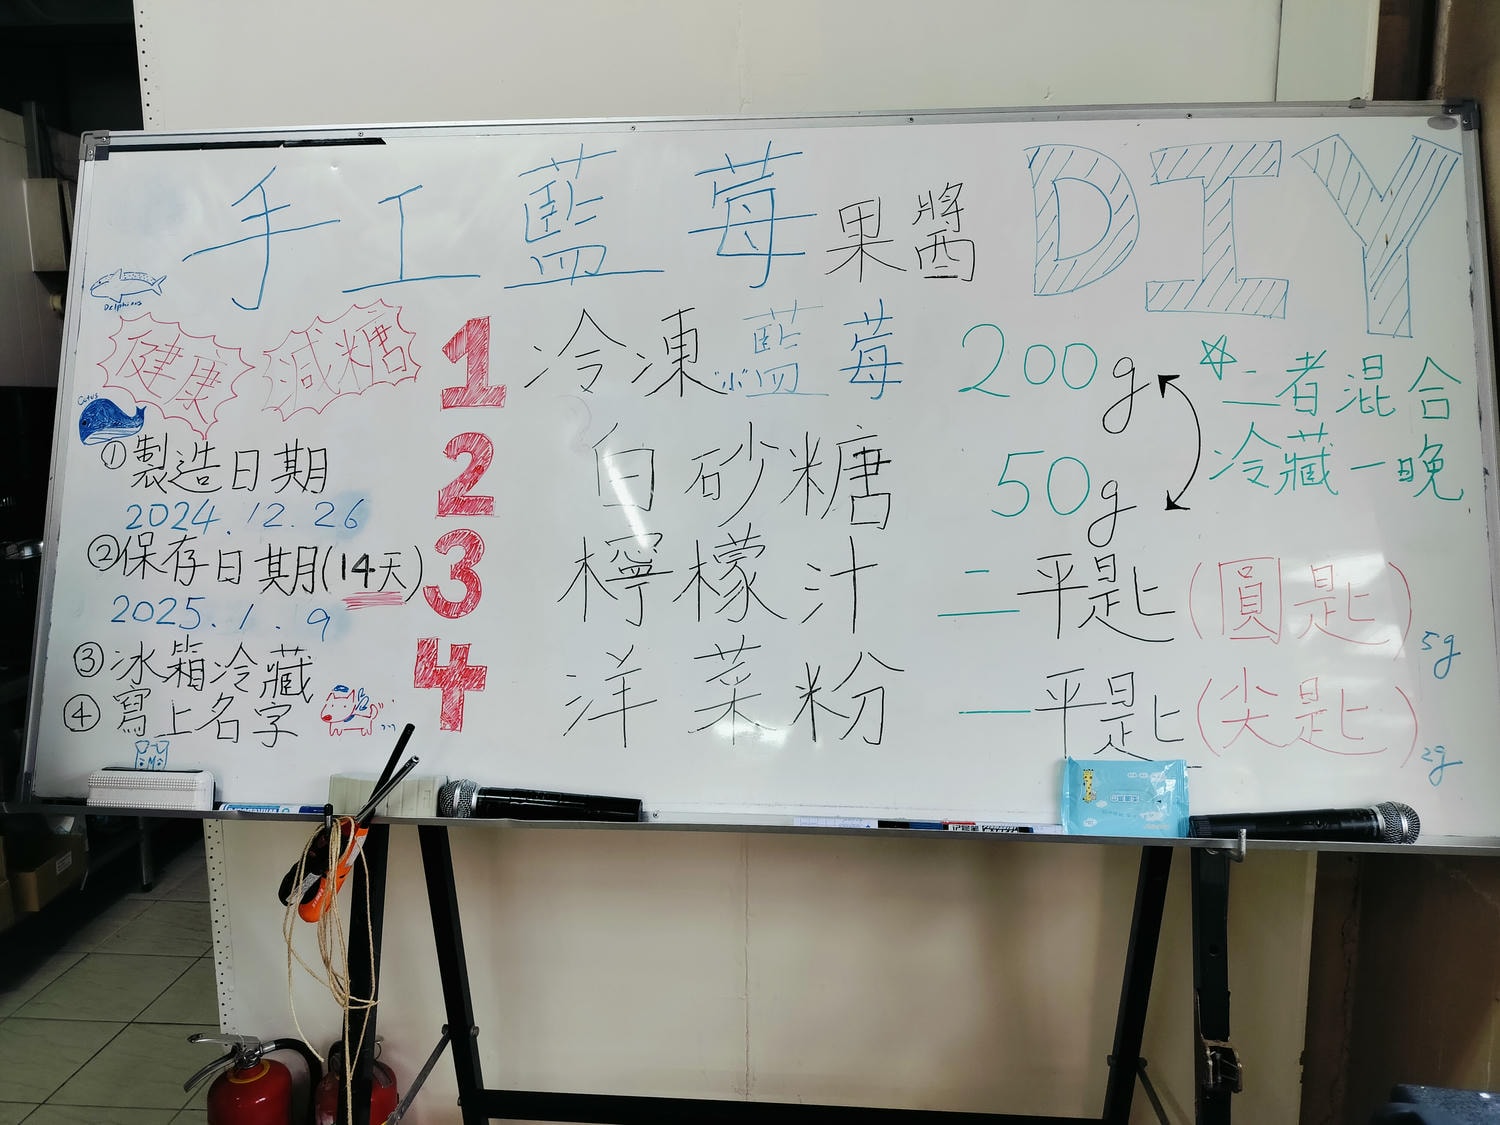 手工藍莓果醬 DIY
Delphinus
健康 減糖
Cetus
①製造日期
2024.12.26
②保存日期(14天)
2025.1.9
③冰箱冷藏
④寫上名字
1 冷凍藍莓 200g
2 白砂糖 50g
☆二者混合
冷藏一晚
3 檸檬汁 二平匙(圓匙) 5g
4 洋菜粉 一平匙(尖匙) 2g